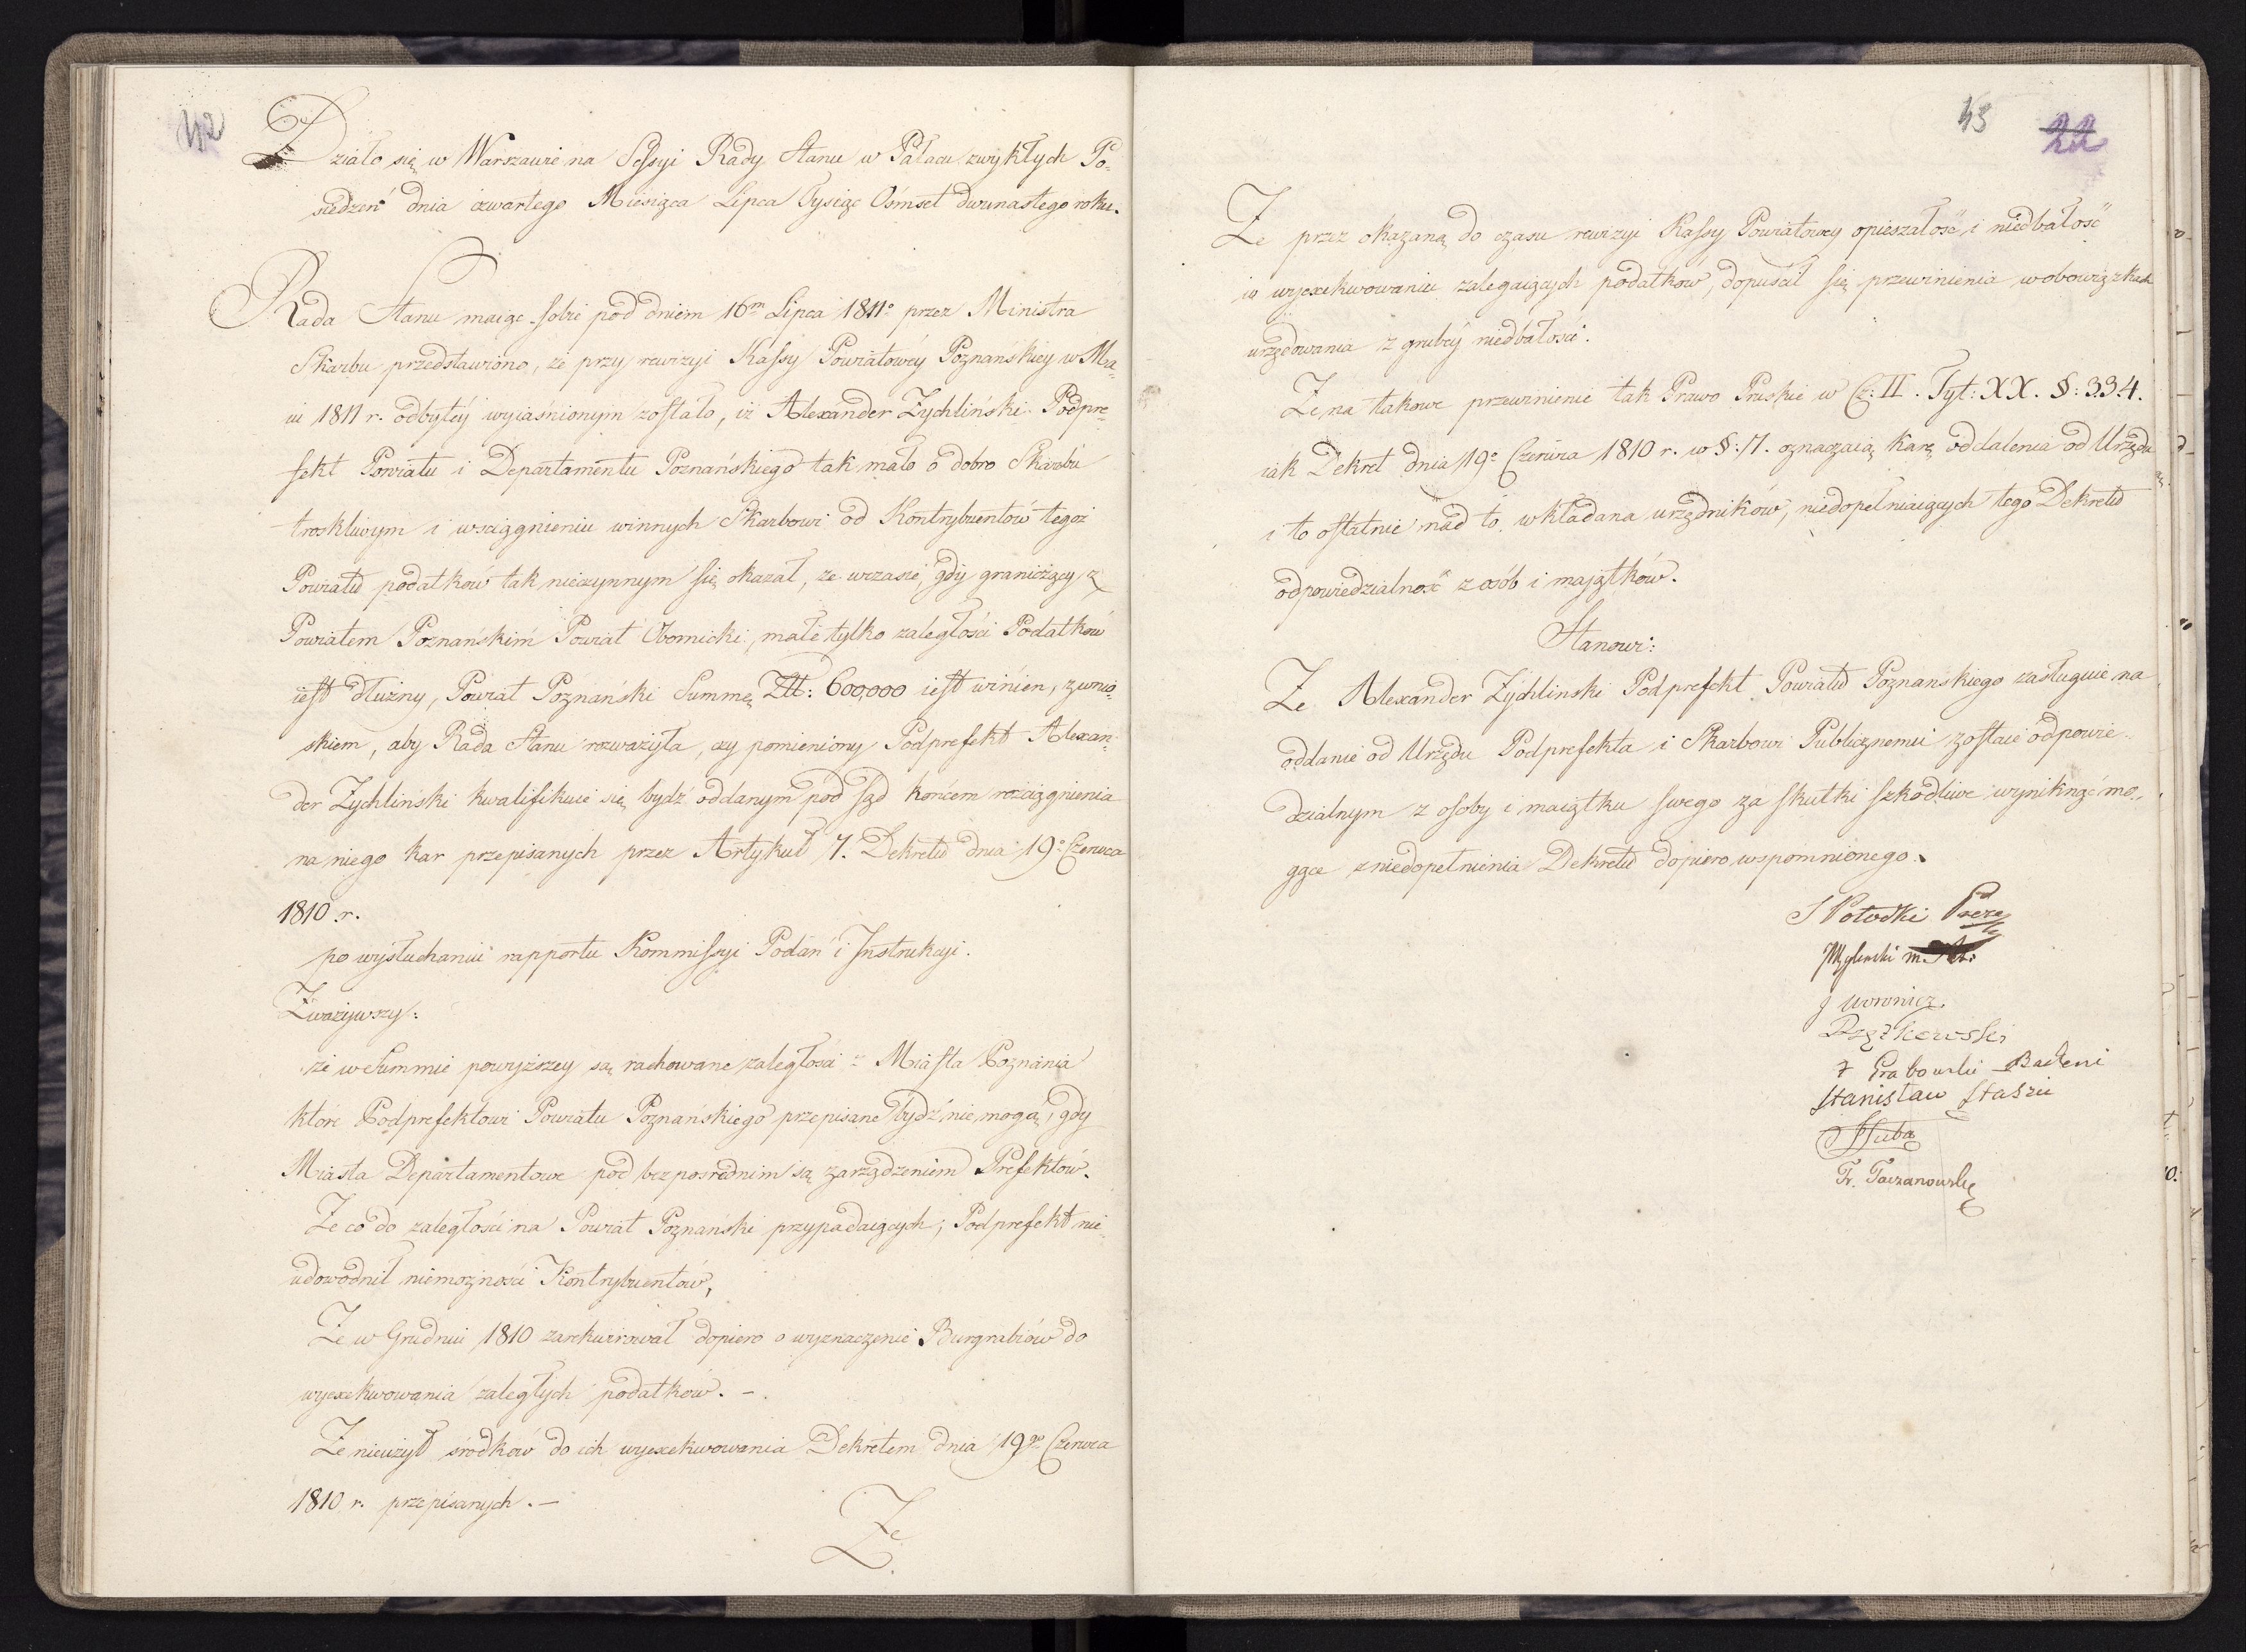 42
Działo się w Warszawie na Sessyi Rady Stanu w Pałacu zwykłych Po-
siedzeń dnia czwartego Miesiąca Lipca Tysiąc Ośmset dwunastego roku.
Rada Stanu maiąc sobie pod dniem 16m Lipca 1811o przez Ministra
Skarbu przedstawiono, że przy rewizyi Kassy Powiatowéy Poznańskiey w Ma-
iu 1811 r. odbytéy wyiaśnionym zostało, iż Alexander Zychliński Podpre-
fekt Powiatu i Departamentu Poznańskiego tak mało o dobro Skarbu
troskliwym i wsciągnieniu winnych Skarbowi od Kontrybuentów tegoż
Powiatu podatków tak nieczynnym się okazał, że wczasie, gdy graniczący z
Powiatem Poznańskim Powiat Obornicki, małe tylko zaległości Podatków
iest dłużny, Powiat Poznański Summę Złt: 600,000 iest winien, z wnio-
skiem, aby Rada Stanu rozważyła, czy pomieniony Podprefekt Alexan-
der Zychliński kwalifikuie się bydź oddanym pod sąd końcem rozciągnienia
na niego kar przepisanych przez Artykuł 7. Dekretu dnia 19o Czerwca
1810 r.
po wysłuchaniu rapportu Kommissyi Podań i Instrukcyi.
Zważywszy:
że w Summie powyższey są rachowane zaległości Miasta Poznania
które Podprefektowi Powiatu Poznańskiego przepisane bydź nie mogą, gdy
Miasta Departamentowe pod bezpośrednim są zarządzeniem Prefektów.
Ze co do zaległości na Powiat Poznański przypadaiących, Podprefekt nie
udowodnił niemożności Kontrybuentów,
Ze w Grudniu 1810 zarekwirował dopiero o wyznaczenie Burgrabiów do
wyexekwowania zaległych podatków. -
Ze nieużył środków do ich wyexekwowania Dekretem dnia 19go Czerwca
1810 r. przepisanych. -
Ze
43
22
Ze przez okazaną do czasu rewizyi Kassy Powiatowey opieszałość i niedbałość
w wyexekwowaniu zalegaiących podatków, dopuścił się przewinienia w obowiązkach
urzędowania z grubéy niedbałości.
Ze na takowe przewinienie tak Prawo Pruskie w Cz: II. Tyt: XX. §: 334.
iak Dekret dnia 19o Czerwca 1810 r. w §: 7. oznaczaią karę oddalenia od Urzędu
i to ostatnie nad to wkłada na urzędników, niedopełniaiących tego Dekretu
odpowiedzialność z osób i majątków.
Stanowi:
Ze Alexander Zychlinski Podprefekt Powiatu Poznańskiego zasługuie na
oddanie od Urzędu Podprefekta i Skarbowi Publicznemu zostaie odpowie-
dzialnym z osoby i maiątku swego za skutki szkodliwe wyniknąć mo-
gące z niedopełnienia Dekretu dopiero wspomnionego.
S Potocki Prezes
J Woronicz
F Grabowski Badeni
Stanisław Staszic
Fr. Taczanowski